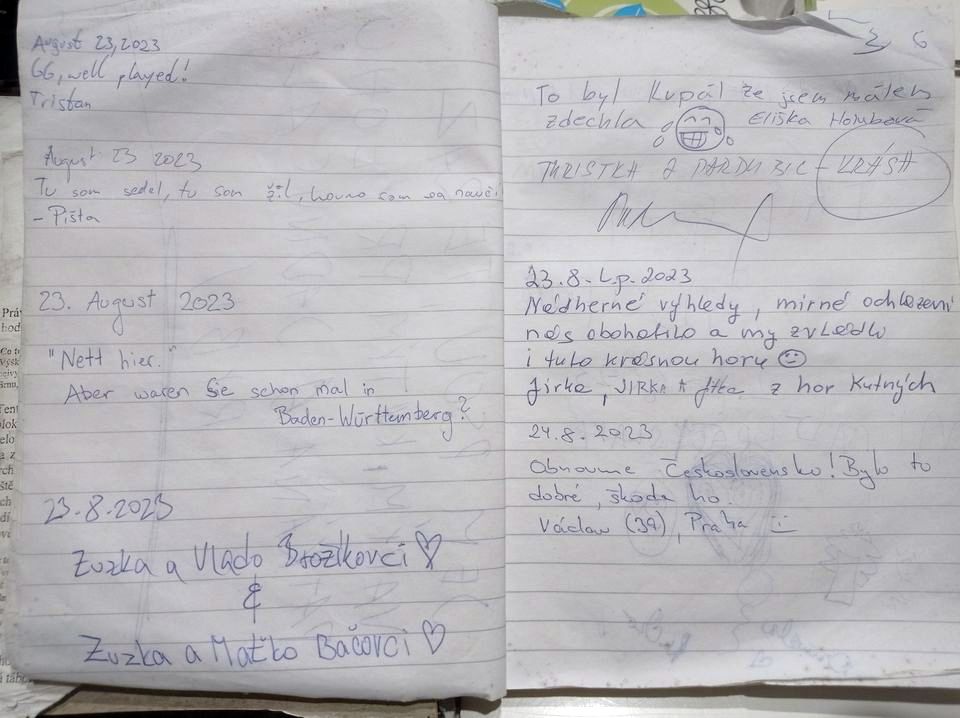 August 23, 2023
GG, well played!
Tristan
August 23 2023
Tu som sedel, tu som žil, hovno som sa naučil
- Pišta
23. August 2023
"Nett hier."
Aber waren Sie schon mal in
Baden-Württemberg?
23.8.2023
Zuzka a Vlado Brožíkovci
&
Zuzka a Maťko Bačovci
To byl kupál že jsem málem
zdechla Eliška Holubová
TURISTKA Z PARDUBIC - KRÁSA
23.8. l.p. 2023
Nádherné výhledy, mírné ochlazení
nás obohatilo a my zvládli
i tuto krásnou horu
Jirka, JIRKA A Jitka z hor Kutných
24.8.2023
Obnovme Československo! Bylo to
dobré, škoda ho.
Václav (39), Praha